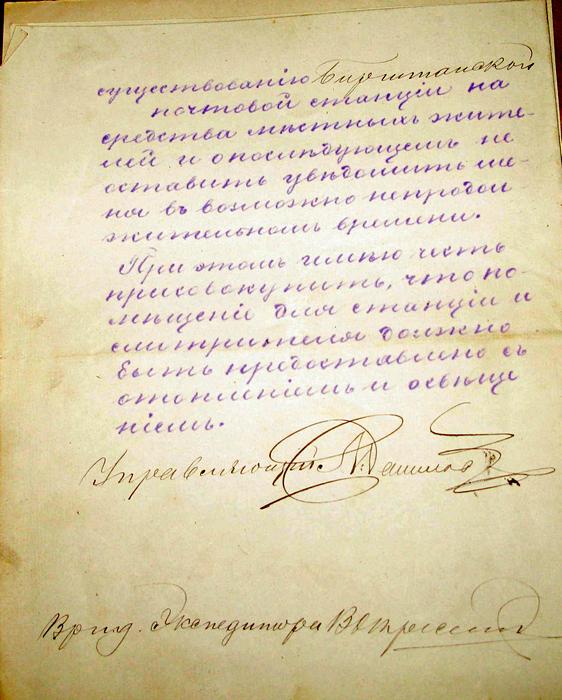 существованію Бирштанской
почтовой станціи на
средства мѣстныхъ жите-
лей и о послѣдующемъ не
оставить увѣдомить ме-
ня въ возможно непродол-
жительномъ времени.
При этомъ имѣю честь
присовокупить, что по-
мѣщеніе для станціи и
смотрителя должно
быть предоставлено съ
отопленіемъ и освѣще
ніемъ.
Управляющій
Врид. Экспедитора